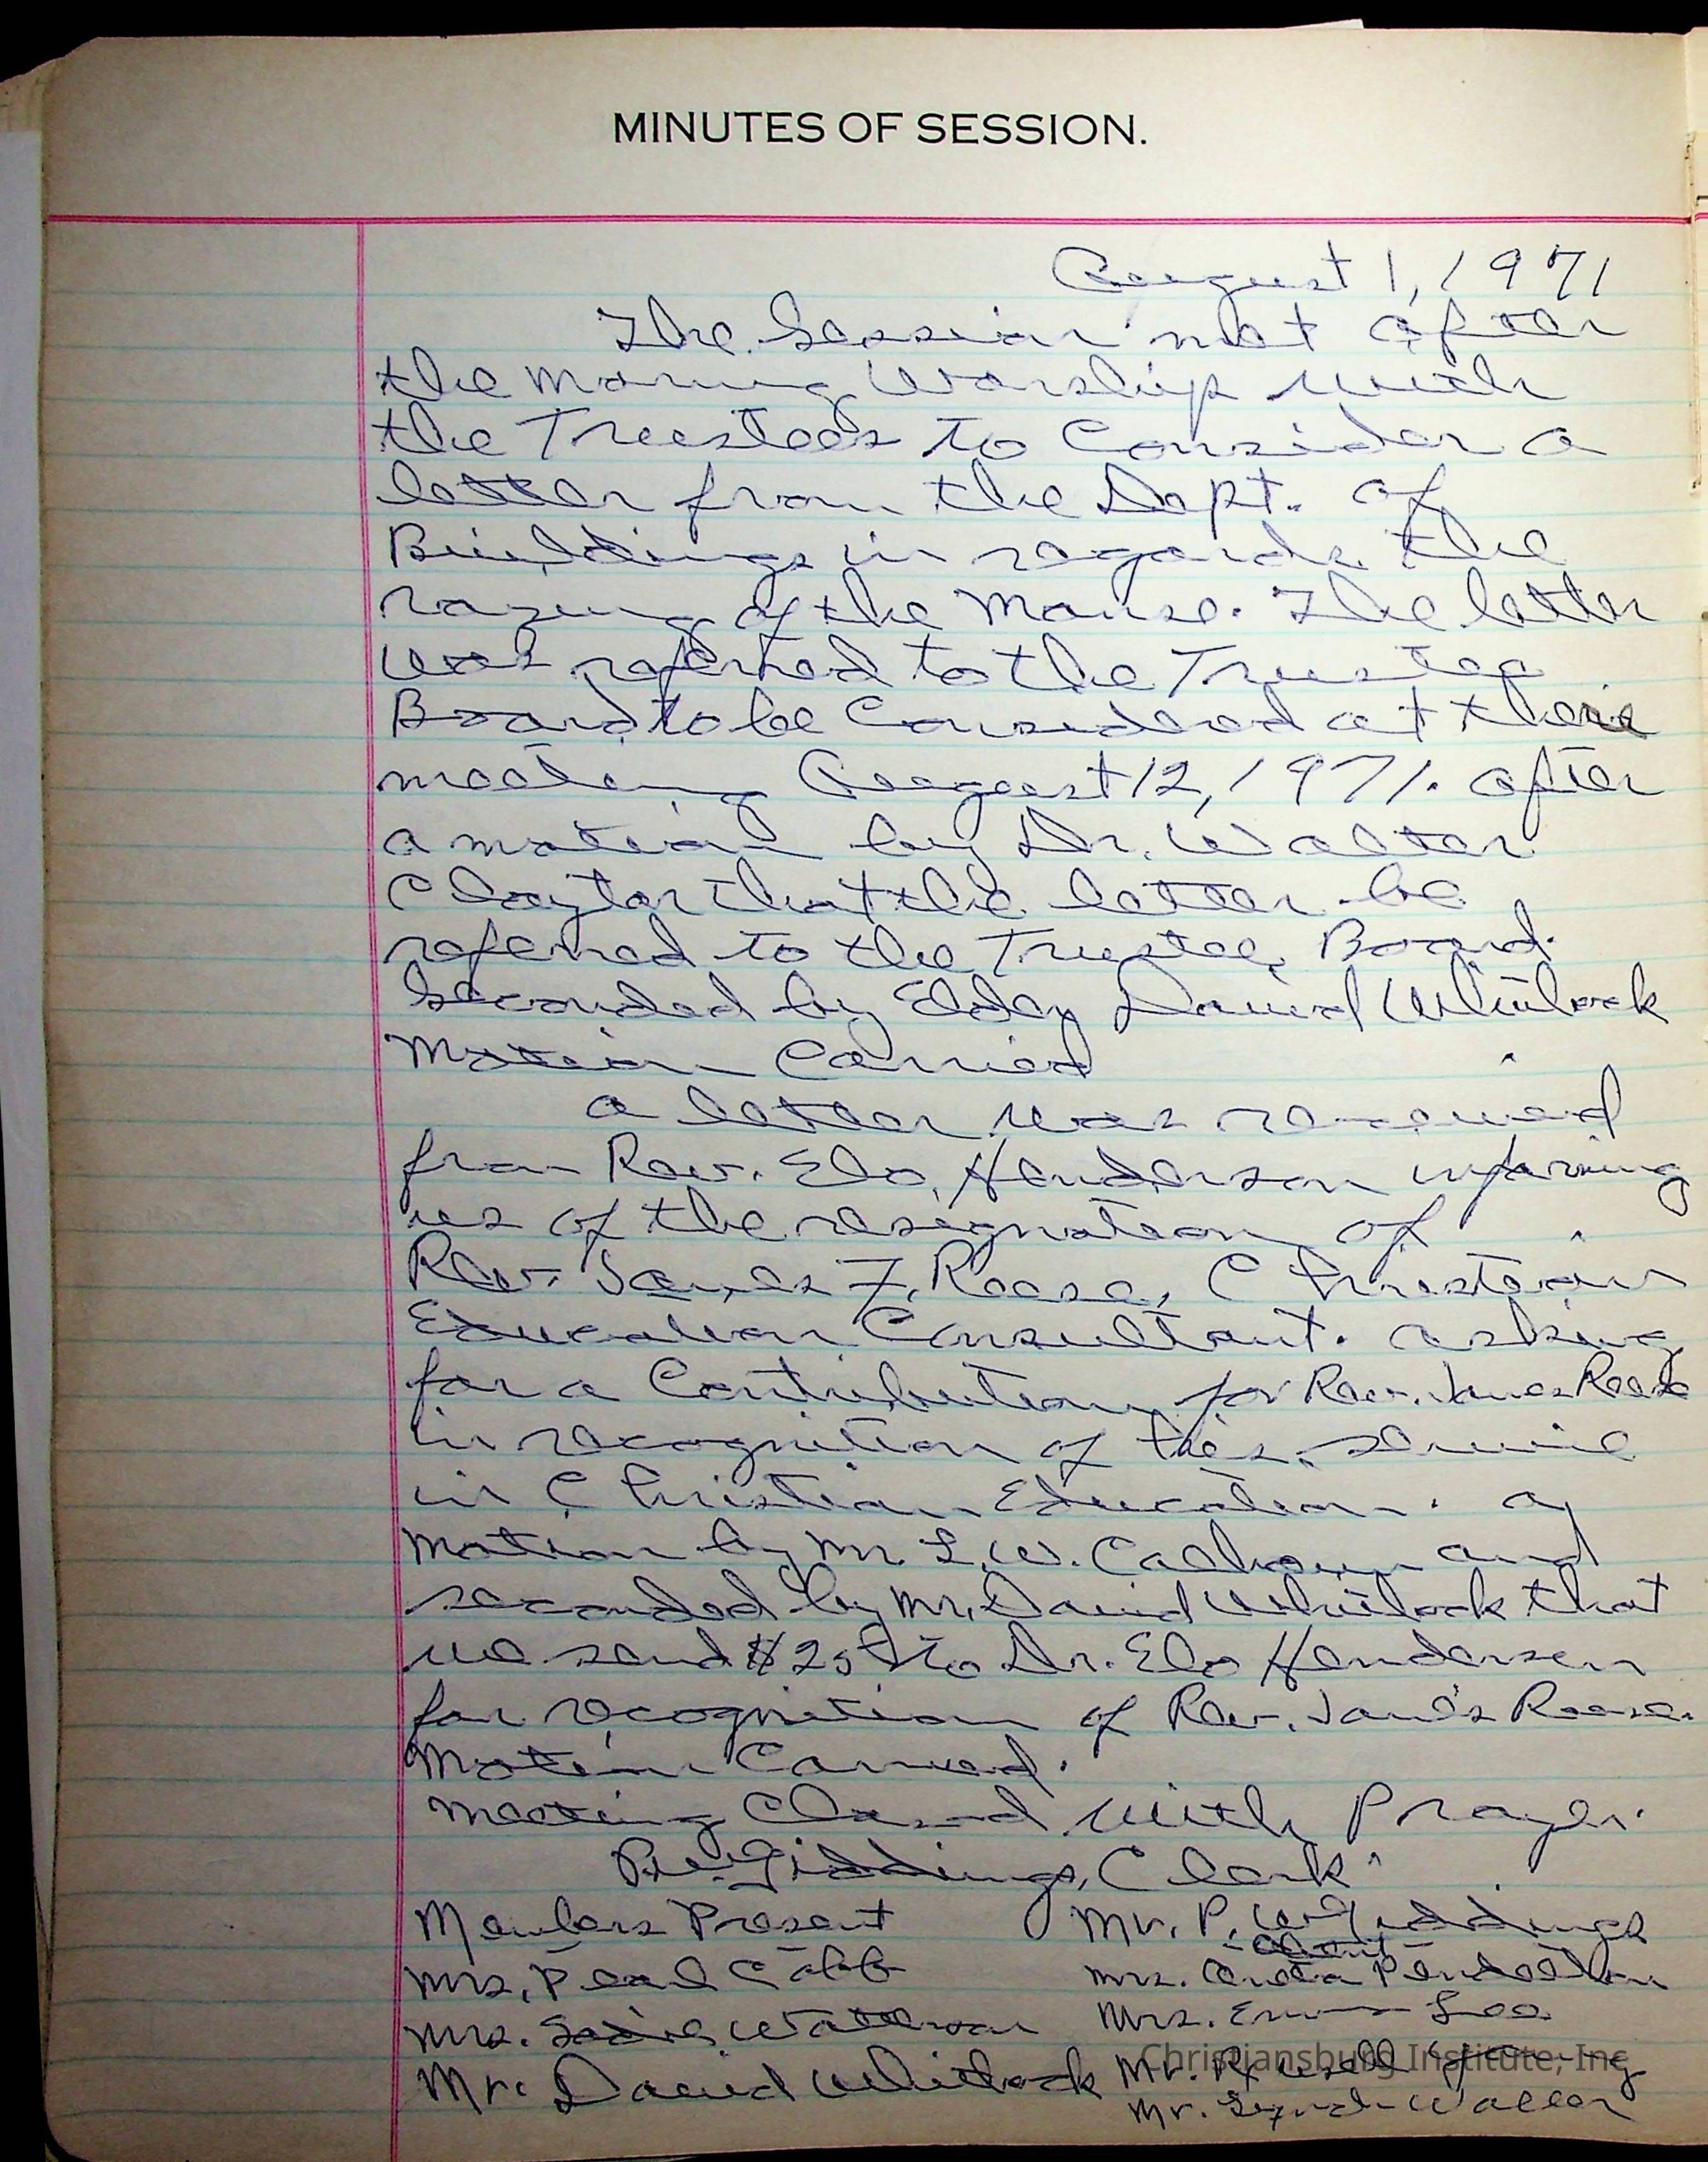 MINUTES OF SESSION.
August 1, 1971
The Session met after
the morning Worship with
the Trustees to Consider a
letter from the Dept. of
Buildings in regards the
razing of the Manse. The letter
was referred to the Trustee
Board to be Considered at their
meeting August 12, 1971. after
a motion by Dr. Walter
Claytor that the letter be
referred to the Trustee Board.
Seconded by Elder David Whitlock
Motion Carried
a letter was received
from Rev. Elo Henderson informing
us of the resignation of
Rev. James F. Reese, Christian
Education Consultant. asking
for a Contribution for Rev. James Reese
in recognition of his service
in Christian Education. a
motion by Mr. L. W. Calhoun and
seconded by Mr. David Whitlock that
we send $25 to Dr. Elo Henderson
for recognition of Rev. James Reese.
Motion Carried.
meeting Closed with Prayer.
P. W. Giddings, Clerk
Members Present
Mr. P. W. Giddings
Mrs. Pearl Cobb
Mrs. Pendleton
Mrs. Sadie Watterson
Mrs. Erma Lee
Mr. David Whitlock
Mr. Russell Young
Mr. Waller
Christiansburg Institute, Inc